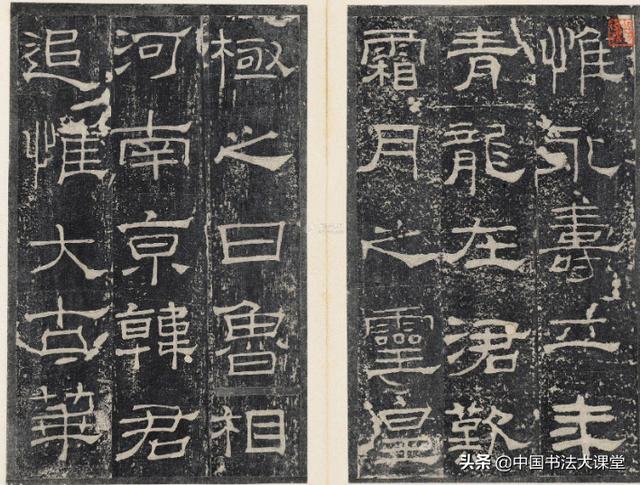 惟永壽二年
青龍在涒歎
霜月之靈皇
極之日魯相
河南京韓君
追惟大古華
头条 @中国书法大课堂